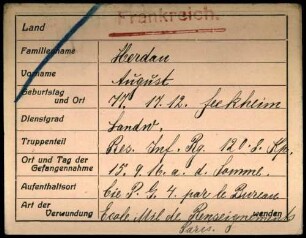 Frankreich.
Land
Familienname Herdau
Vorname August
Geburtstag und Ort 17. 12.
Dienstgrad Landw.
Truppenteil Res. Inf. Rg. 128. 8. Kp.
Ort und Tag der Gefangennahme 15. 9. 16. a. d. Somme.
Aufenthaltsort Cie P. G. 4. par le Bureau
Art der Verwundung Ecole Mil. de Renseignements
Paris.